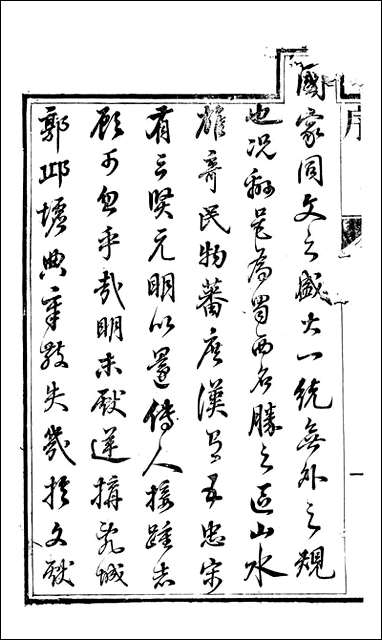 序
國家同文之盛大一統無外之規
也況新邑為蜀西名勝之區山水
雄奇民物蕃庶漢日五忠宋
有三賢元明以還傳人接踵志
顧可忽乎哉明末獻逆搆亂城
郭邱墟典章散失幾於文獻